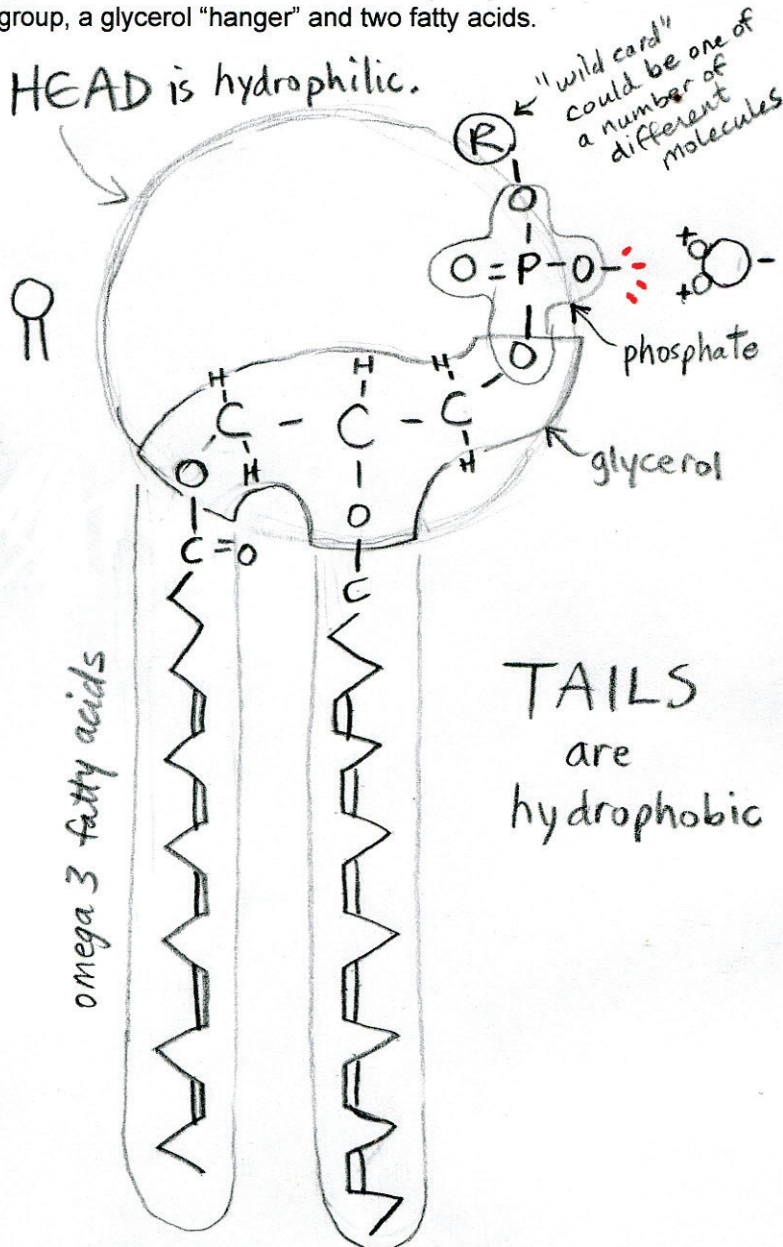 group, a glycerol “hanger” and two fatty acids.
HEAD is hydrophilic.
"wild card"
could be one of
a number of
different
molecules
R
O
O=P-O-
O
+
+
-
phosphate
H H H
C - C - C
H H
O
O
C=O
C
glycerol
omega 3 fatty acids
TAILS
are
hydrophobic